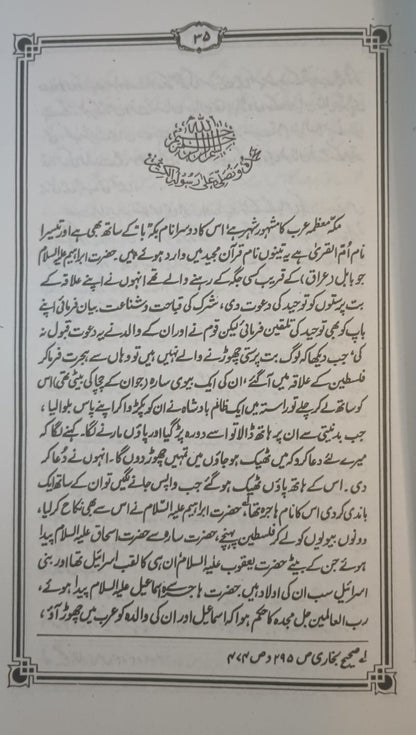 ۳۵
بسم اللہ الرحمن الرحیم
نحمدہ ونصلی علیٰ رسولہ الکریم
مکہ معظمہ عرب کا مشہور شہر ہے، اس کا دوسرا نام بکہ "با" کے ساتھ بھی ہے اور تیسرا
نام اُمّ القریٰ ہے یہ تینوں نام قرآن مجید میں وارد ہوئے ہیں۔ حضرت ابراہیم علیہ السلام
جو بابل (عراق) کے قریب کسی جگہ کے رہنے والے تھے انہوں نے اپنے علاقہ کے
بت پرستوں کو توحید کی دعوت دی، شرک کی قباحت و شناعت بیان فرمائی اپنے
باپ کو بھی توحید کی تلقین فرمائی لیکن قوم نے اور ان کے والد نے یہ دعوت قبول نہ
کی، جب دیکھا کہ لوگ بت پرستی چھوڑنے والے نہیں ہیں تو وہاں سے ہجرت فرما کر
فلسطین کے علاقہ میں آ گئے، ان کی ایک بیوی سارہ (جو ان کے چچا کی بیٹی تھی) اس
کو ساتھ لے کر چلے تو راستہ میں ایک ظالم بادشاہ نے ان کو پکڑوا کر اپنے پاس بلوا لیا،
جب بدنیتی سے ان پر ہاتھ ڈالا تو اسے دورہ پڑ گیا اور پاؤں مارنے لگا۔ کہنے لگا کہ
میرے لئے دعا کرو کہ میں ٹھیک ہو جاؤں میں تمہیں چھوڑ دوں گا۔ انہوں نے دُعا کر
دی۔ اس کے ہاتھ پاؤں ٹھیک ہو گئے جب واپس جانے لگیں تو ان کے ساتھ ایک
باندی کر دی اس کا نام ہاجرہ تھا، حضرت ابراہیم علیہ السلام نے اس سے بھی نکاح کر لیا،
دونوں بیویوں کو لے کر فلسطین پہنچے، حضرت سارہ سے حضرت اسحاق علیہ السلام پیدا
ہوئے جن کے بیٹے حضرت یعقوب علیہ السلام ان ہی کا لقب اسرائیل تھا اور بنی
اسرائیل سب ان کی اولاد ہیں۔ حضرت ہاجرہ سے اسماعیل علیہ السلام پیدا ہوئے،
رب العالمین جل مجدہ کا حکم ہوا کہ اسماعیل اور ان کی والدہ کو عرب میں چھوڑ آؤ،
لے صحیح بخاری ص ۲۹۵ و ص ۴۷۴